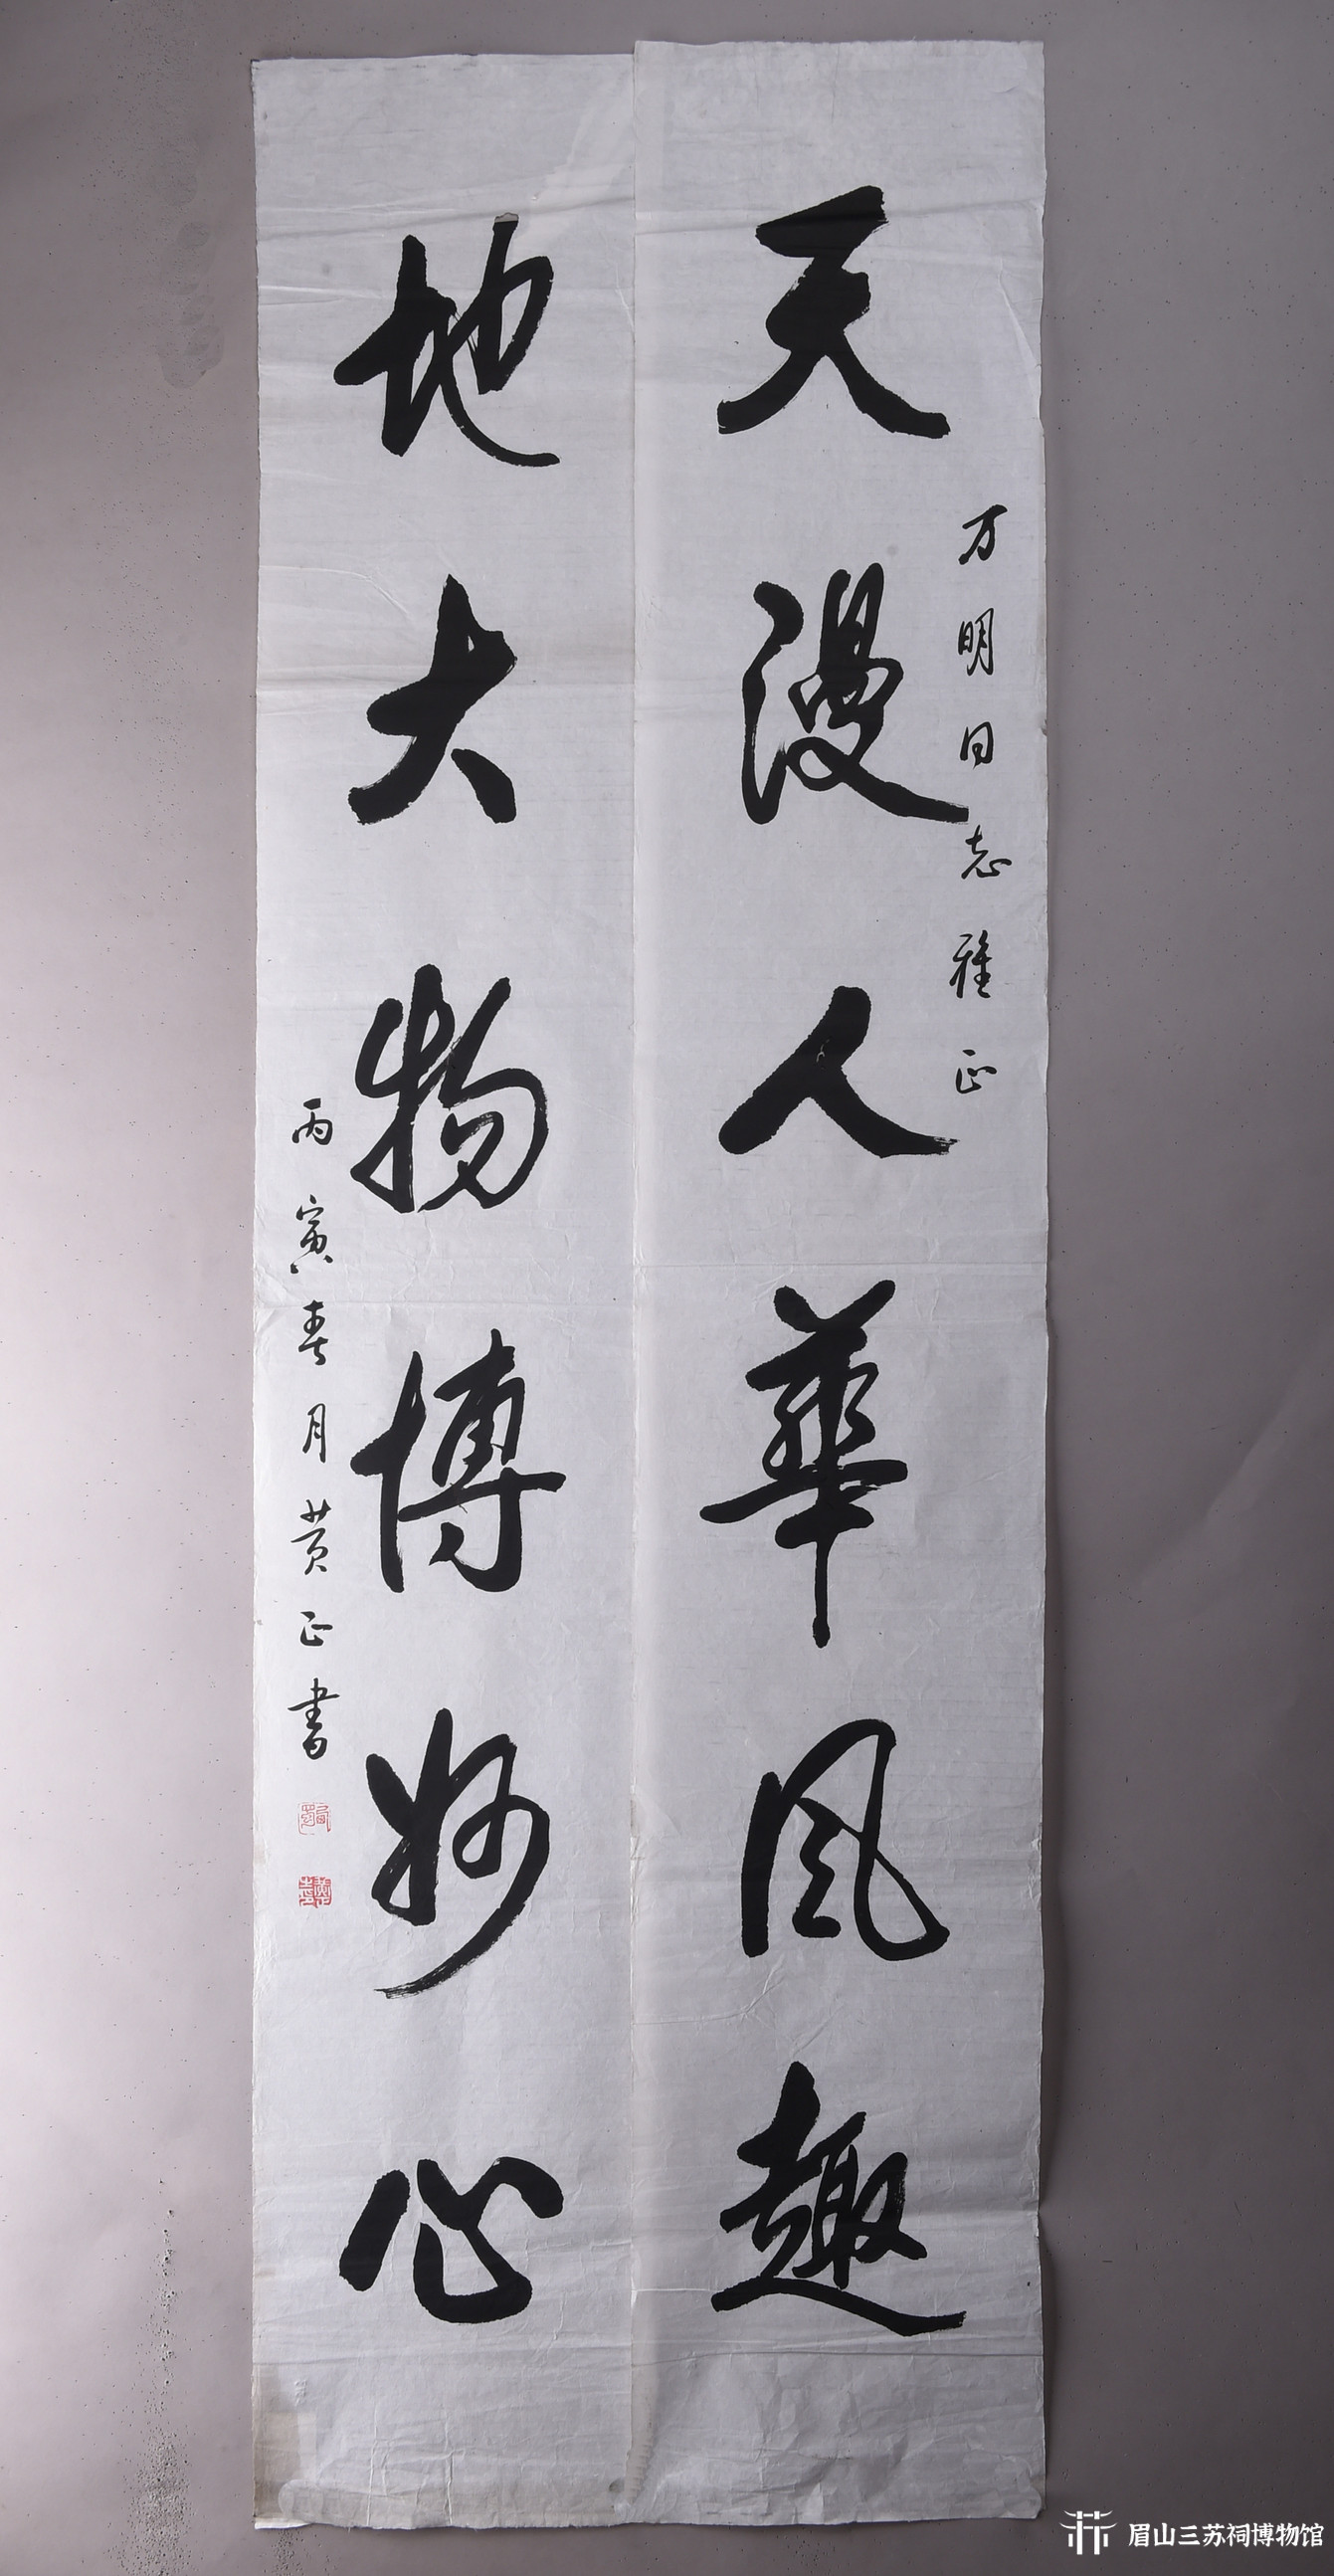 万明同志雅正
天漫人華风趣
地大物博妙心
丙寅春月黄正書
眉山三苏祠博物馆